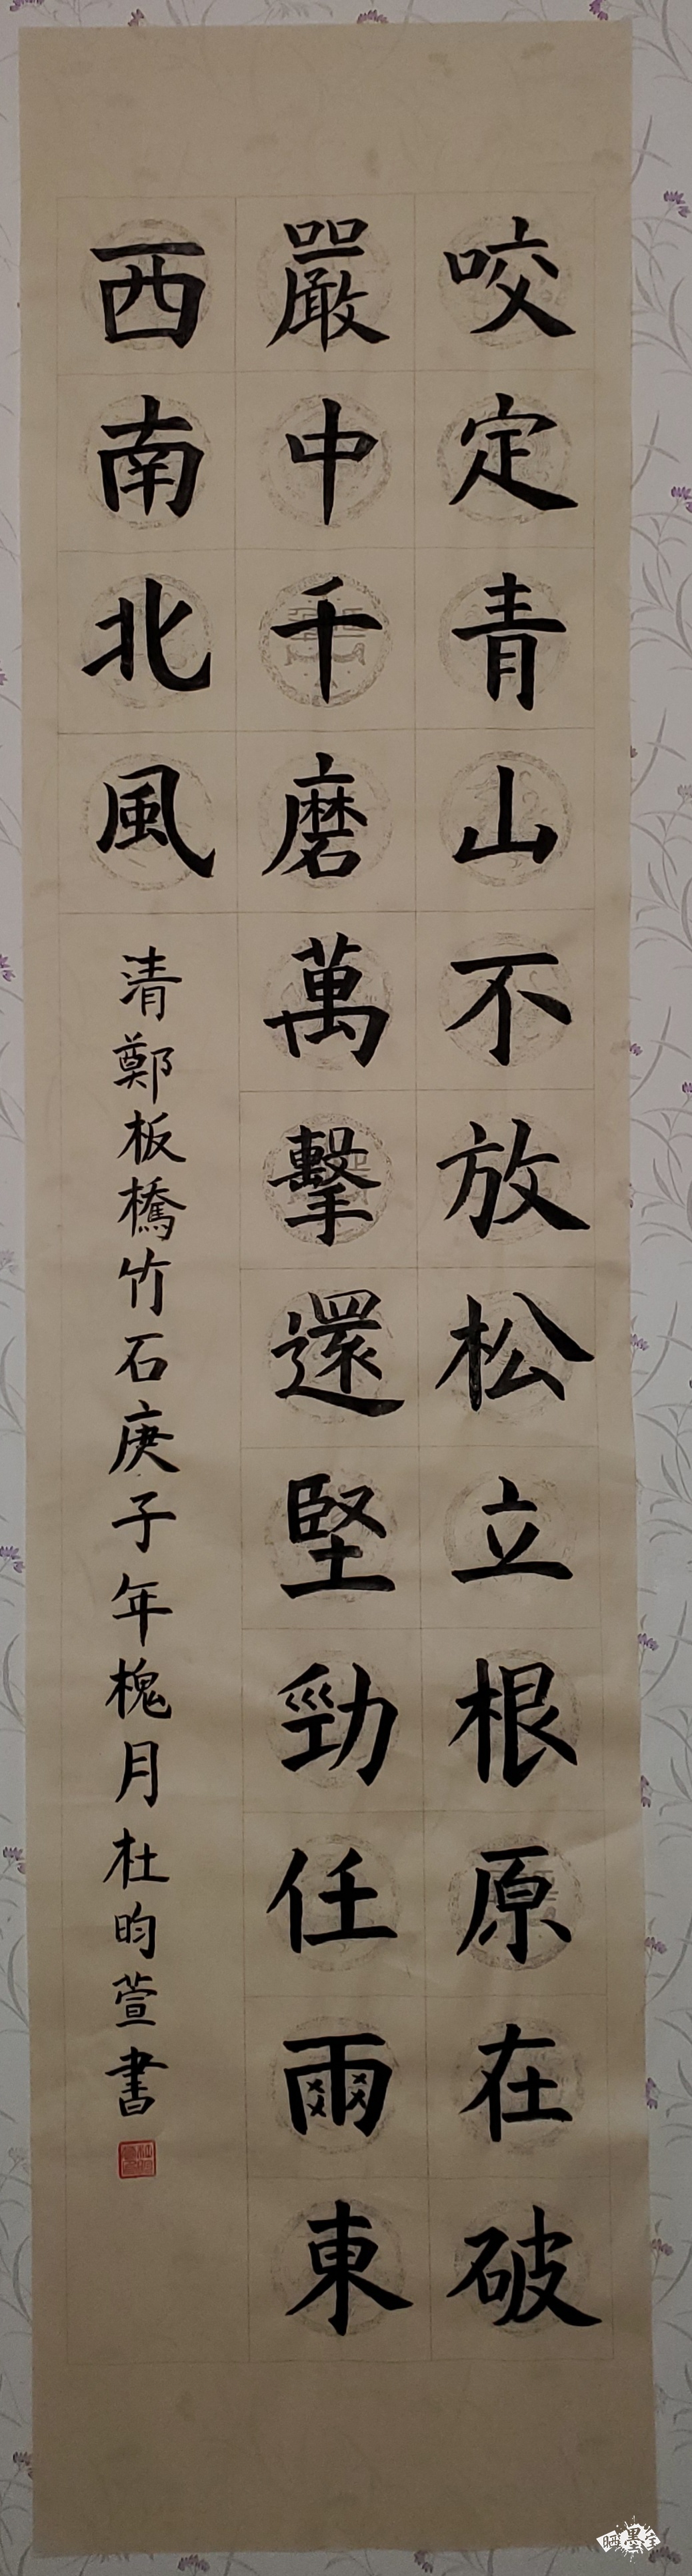 咬定青山不放松立根原在破
嚴中千磨萬擊還堅勁任爾東
西南北風
清鄭板橋竹石庚子年槐月杜昀萱書
晒墨宝